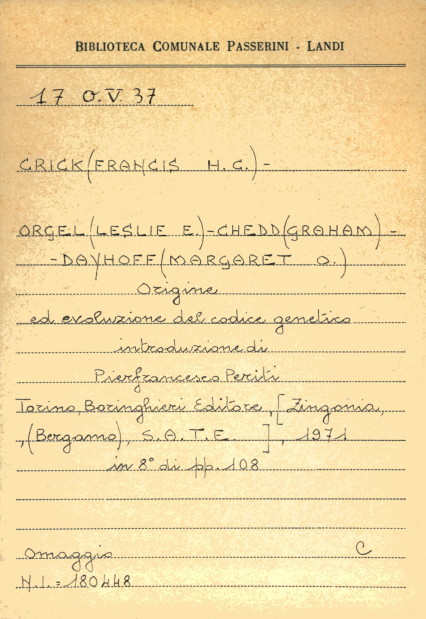 BIBLIOTECA COMUNALE PASSERINI - LANDI
17 O.V. 37
CRICK (FRANCIS H.C.) -
ORGEL (LESLIE E.) - CHEDD (GRAHAM) -
- DAYHOFF (MARGARET O.)
Origine
ed evoluzione del codice genetico
introduzione di
Pierfrancesco Periti
Torino, Boringhieri Editore, [Zingonia,
, (Bergamo), S.A.T.E. ], 1971
in 8° di pp. 108
Omaggio C
N.I.= 180448